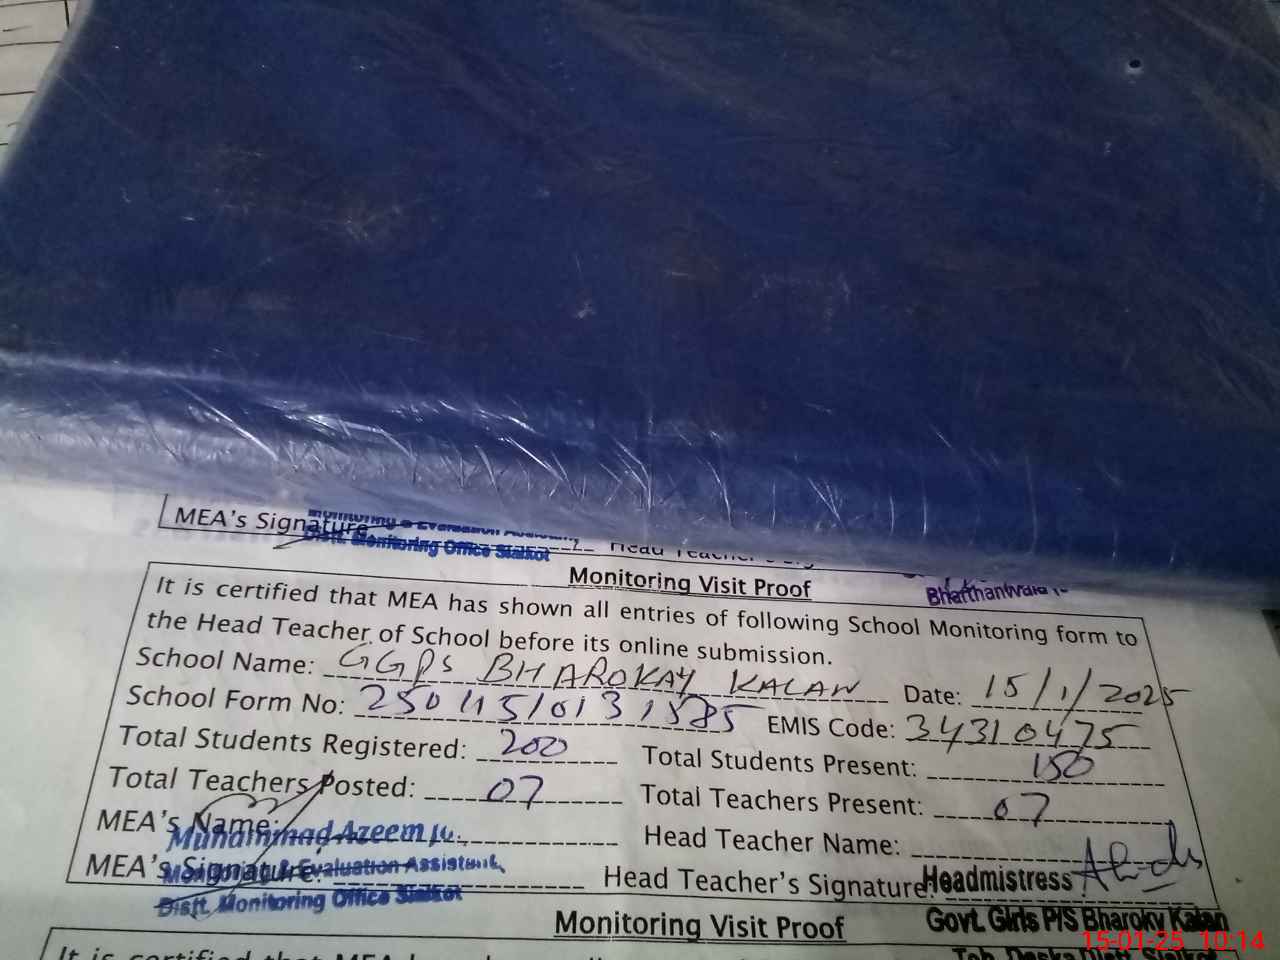 MEA's Signature
Monitoring & Evaluation Assistant
Distt. Monitoring Office Sialkot
Monitoring Visit Proof
It is certified that MEA has shown all entries of following School Monitoring form to
the Head Teacher of School before its online submission.
School Name: GGPS BHAROKAY KALAN Date: 15/1/2025
School Form No: 25011510131585 EMIS Code: 34310475
Total Students Registered: 200 Total Students Present: 150
Total Teachers Posted: 07 Total Teachers Present: 07
MEA's Name: Muhammad Azeem Head Teacher Name:
MEA's Signature: Monitoring & Evaluation Assistant, Head Teacher's Signature: Headmistress
Distt. Monitoring Office Sialkot Govt. Girls P/S Bharoky Kalan
Monitoring Visit Proof
Teh. Daska Distt. Sialkot
It is certified that MEA
15-01-25 10:14